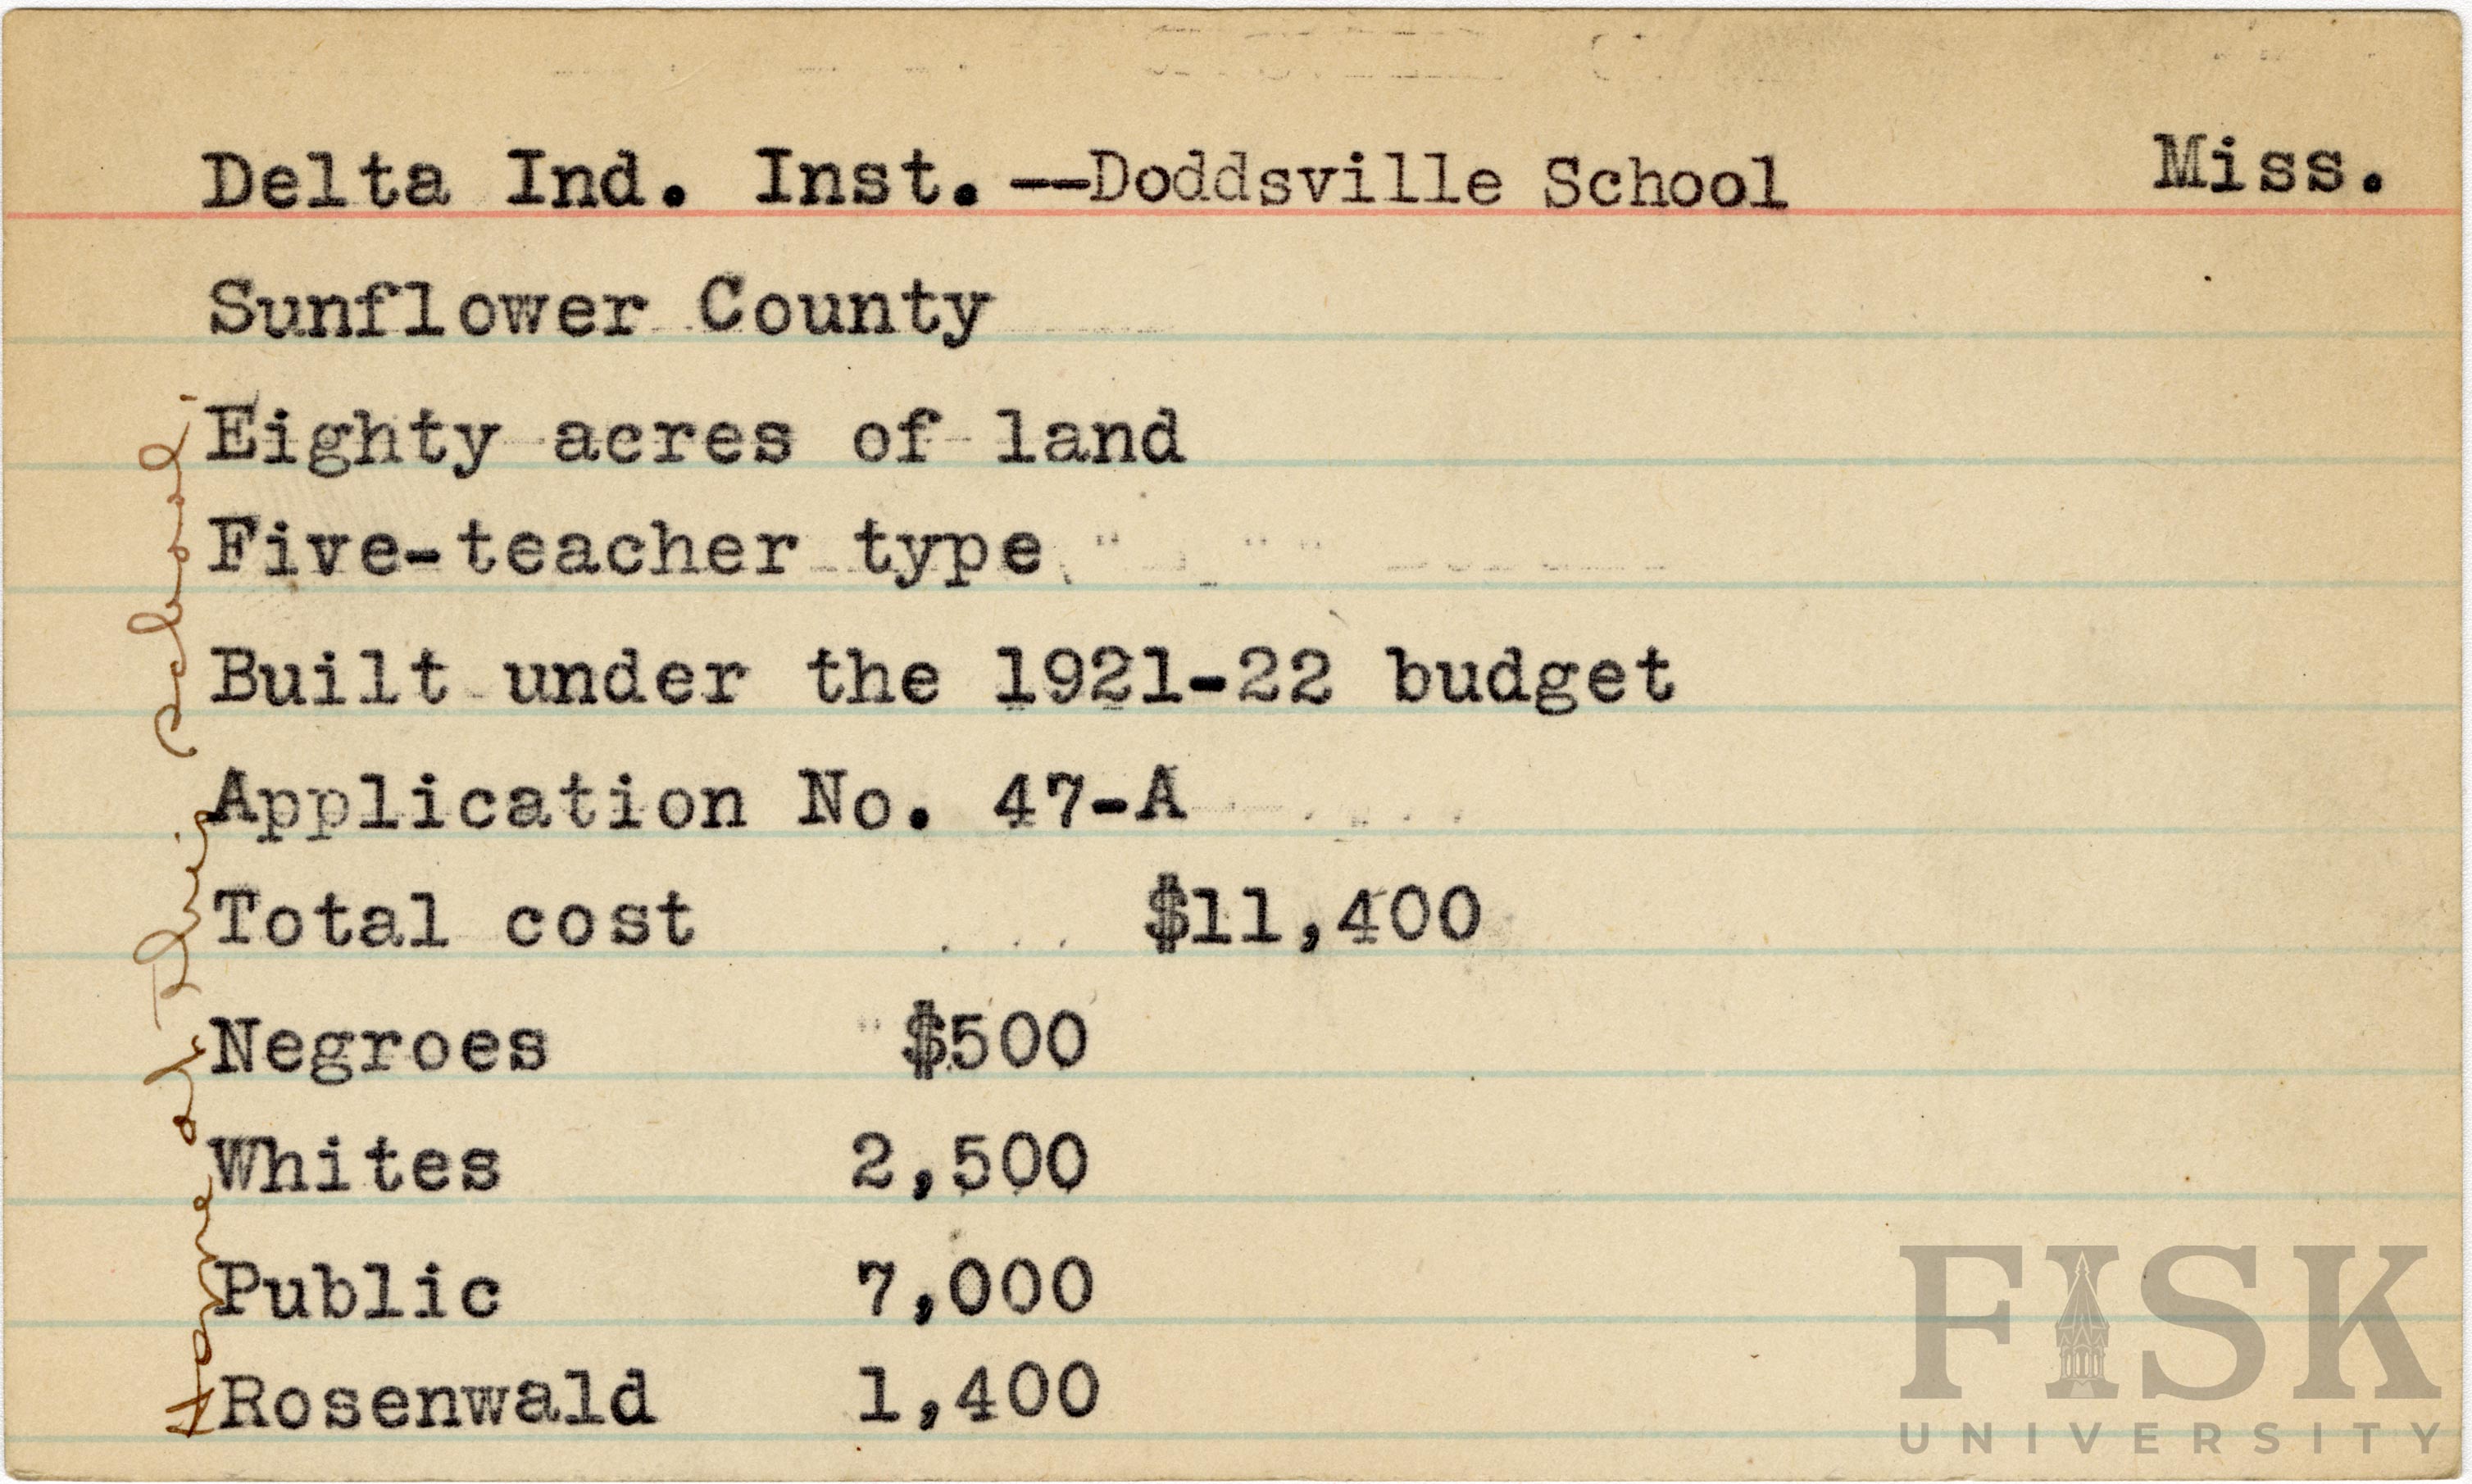 Delta Ind. Inst.--Doddsville School Miss.
Sunflower County
Eighty acres of land
Five-teacher type
Built under the 1921-22 budget
Application No. 47-A
Total cost $11,400
Negroes $500
Whites 2,500
Public 7,000
Rosenwald 1,400
Name of this school.
FISK
UNIVERSITY